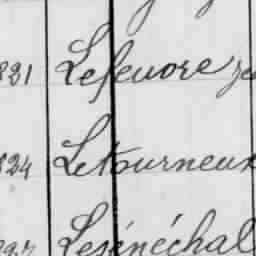 821 Lefeuvre
824 Letourneux
Lesénéchal